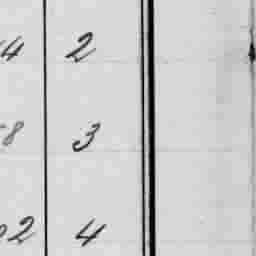 4 2
8 3
2 4